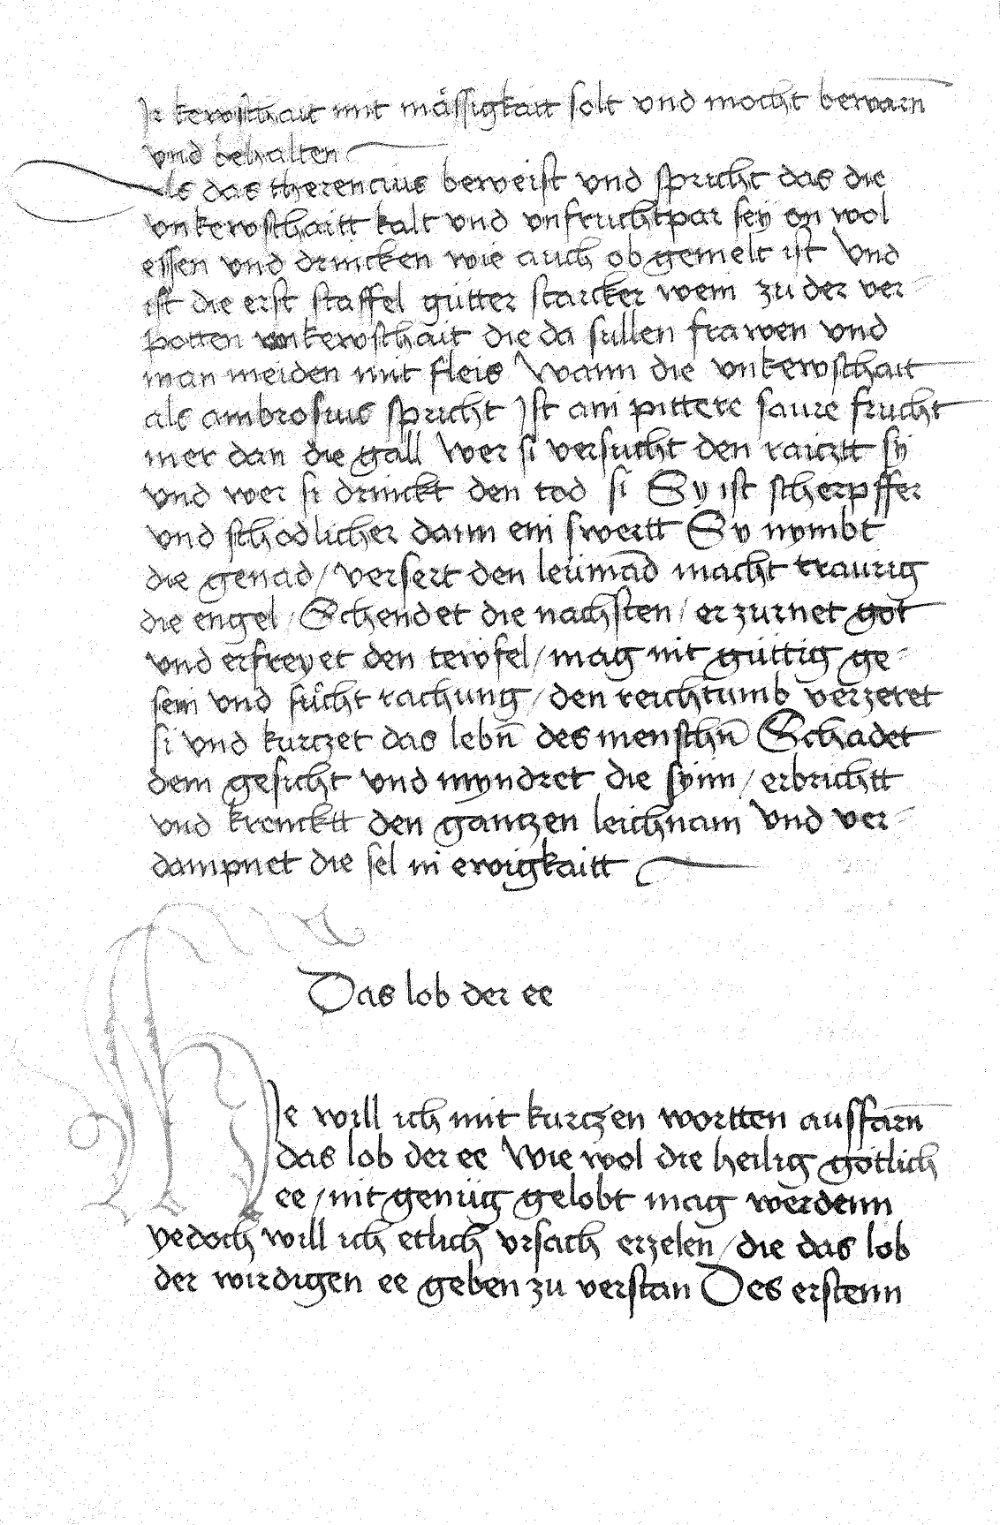 Ir kewschait mit mässigkait solt vnd mocht bewarn̄
vnd behalten
Als das therencius beweist vnd spricht das die
vnkewschaitt kalt vnd vnfruchtpar seÿ on wol
essen vnd drincken wie auch ob gemelt ist Vnd
ist die erst staffel gutter starcker wein zu der ver⸗
potten vnkewschait die da sullen frawen vnd
man meiden mit fleis Wann die vnkewschait
als ambrosius spricht Ist ain pittere saure frucht
mer dan die gall Wer si versucht den raicztt sÿ
vnd wer si drinckt den tod si Sy ist scherpffer
vnd schodlicher dann ein swertt Sy nymbt
die genad / versert den leümād macht traurig
die engel / Schendet die nachsten / er zurnet got
vnd erfreyet den tewfel / mag nit güttig ge⸗
sein vnd sůcht rachung / den reichtumb verzeret
si vnd kurczet das lebn̄ des menschn̄ Schadet
dem gesicht vnd myndret die synn / erbrichtt
vnd krencktt den gantzen leichnam Vnd ver⸗
dampnet die sel in ewigkaitt
Das lob der ee
HIe will ich mit kurczen wortten ausfarn̄
das lob der ee Wie wol die heilig götlich
ee / nit genüg gelobt mag werdenn
yedoch will ich etlich vrsach erzelen / die das lob
der wirdigen ee geben zu verstan Des erstenn